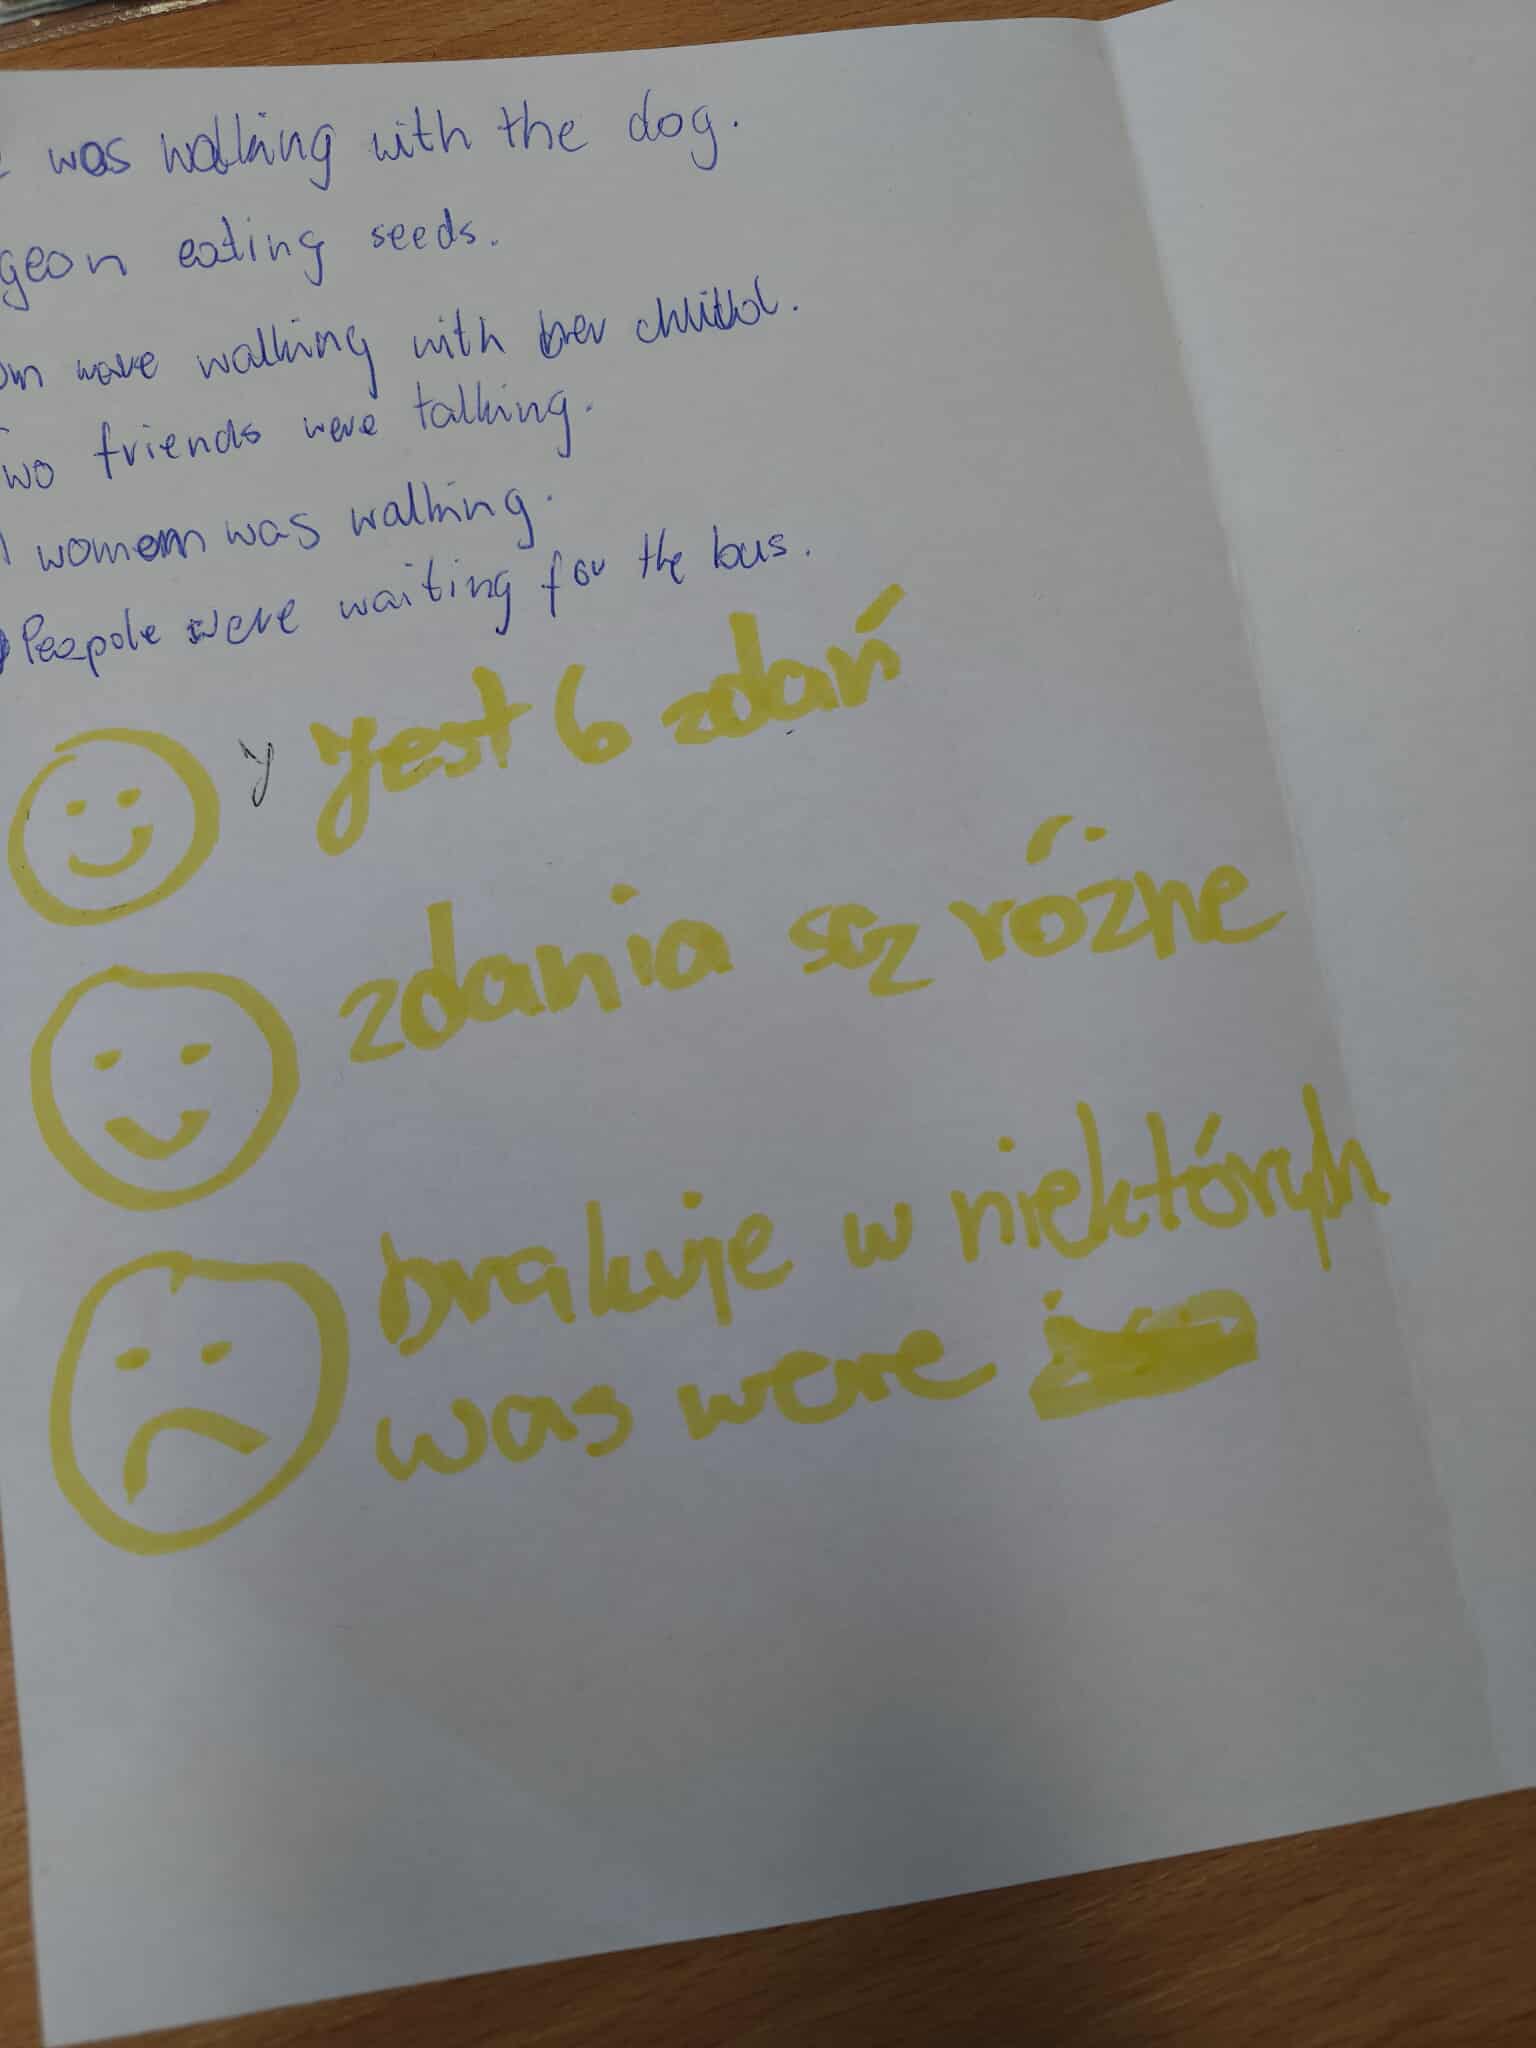 was walking with the dog.
geon eating seeds.
om ware walking with her
wo friends were talking.
womem was walking.
Peapole were waiting for the bus.
y Jest 6 zdań
zdania są różne
brakuje w niektórych
was were